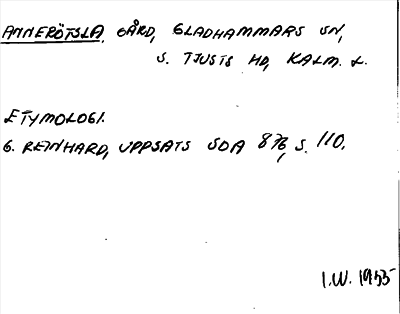 ANNERÖTSLA, GÅRD, GLADHAMMARS SN,
S. TJUSTS HD, KALM. L.
ETYMOLOGI.
G. REINHARD, UPPSATS SOA 876, S. 110.
I.W. 1955